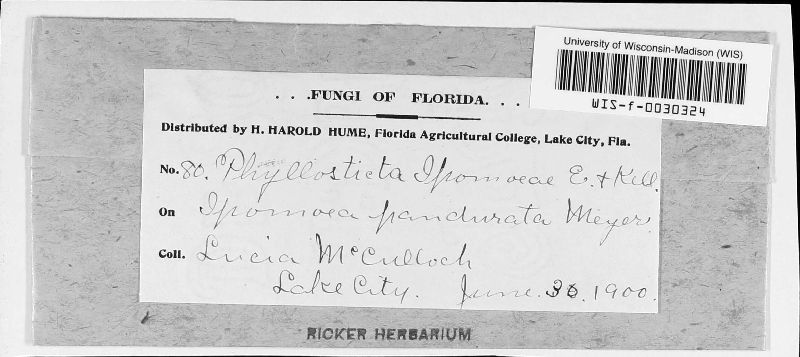 University of Wisconsin-Madison (WIS)
WIS-f-0030324
. . .FUNGI OF FLORIDA. . .
Distributed by H. HAROLD HUME, Florida Agricultural College, Lake City, Fla.
No. 80. Phyllosticta Ipomoeae E. + Kell.
On Ipomoea pandurata Meyer.
Coll. Lucia McCulloch
Lake City. June. 30. 1900.
RICKER HERBARIUM